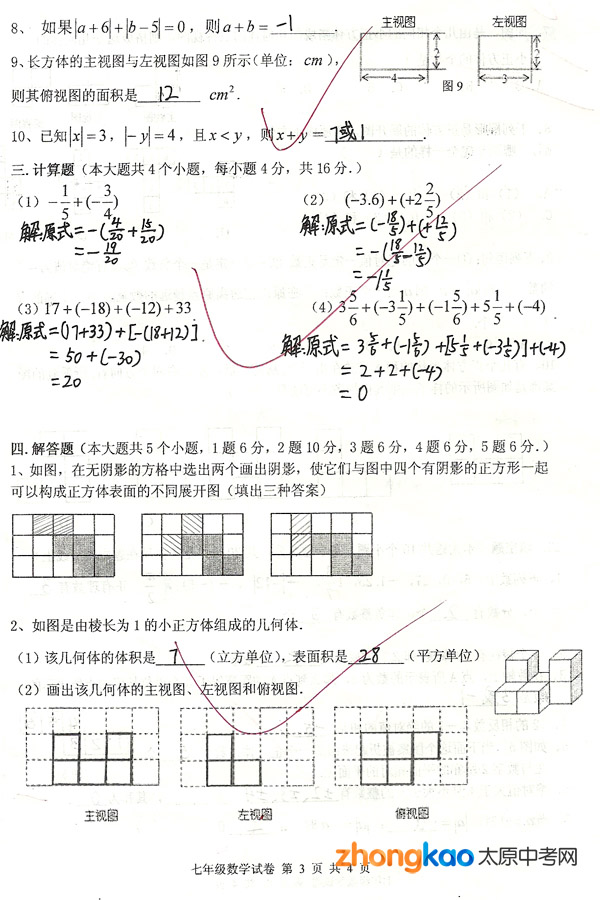 8、如果|a+6|+|b-5|=0，则a+b= -1 .
主视图 左视图
9、长方体的主视图与左视图如图9所示(单位：cm)，
2 2
4 3
图9
则其俯视图的面积是 12 cm².
10、已知|x|=3，|-y|=4，且x<y，则x+y= 7或1 .
三.计算题（本大题共4个小题，每小题4分，共16分.）
(1) -1/5+(-3/4) (2) (-3.6)+(+2 2/5)
解:原式=-(4/20+15/20) 解:原式=(-18/5)+(+12/5)
=-19/20 =-(18/5-12/5)
=-1 1/5
(3) 17+(-18)+(-12)+33 (4) 3 5/6+(-3 1/5)+(-1 5/6)+5 1/5+(-4)
解:原式=(17+33)+[-(18+12)] 解:原式=3 5/6+(-1 5/6)+[5 1/5+(-3 1/5)]+(-4)
=50+(-30) =2+2+(-4)
=20 =0
四.解答题（本大题共5个小题，1题6分，2题10分，3题6分，4题6分，5题6分.）
1、如图，在无阴影的方格中选出两个画出阴影，使它们与图中四个有阴影的正方形一起
可以构成正方体表面的不同展开图（填出三种答案）
2、如图是由棱长为1的小正方体组成的几何体.
(1)该几何体的体积是 7 （立方单位），表面积是 28 （平方单位）
(2)画出该几何体的主视图、左视图和俯视图.
主视图 左视图 俯视图
zhongkao 太原中考网
七年级数学试卷 第 3 页 共 4 页